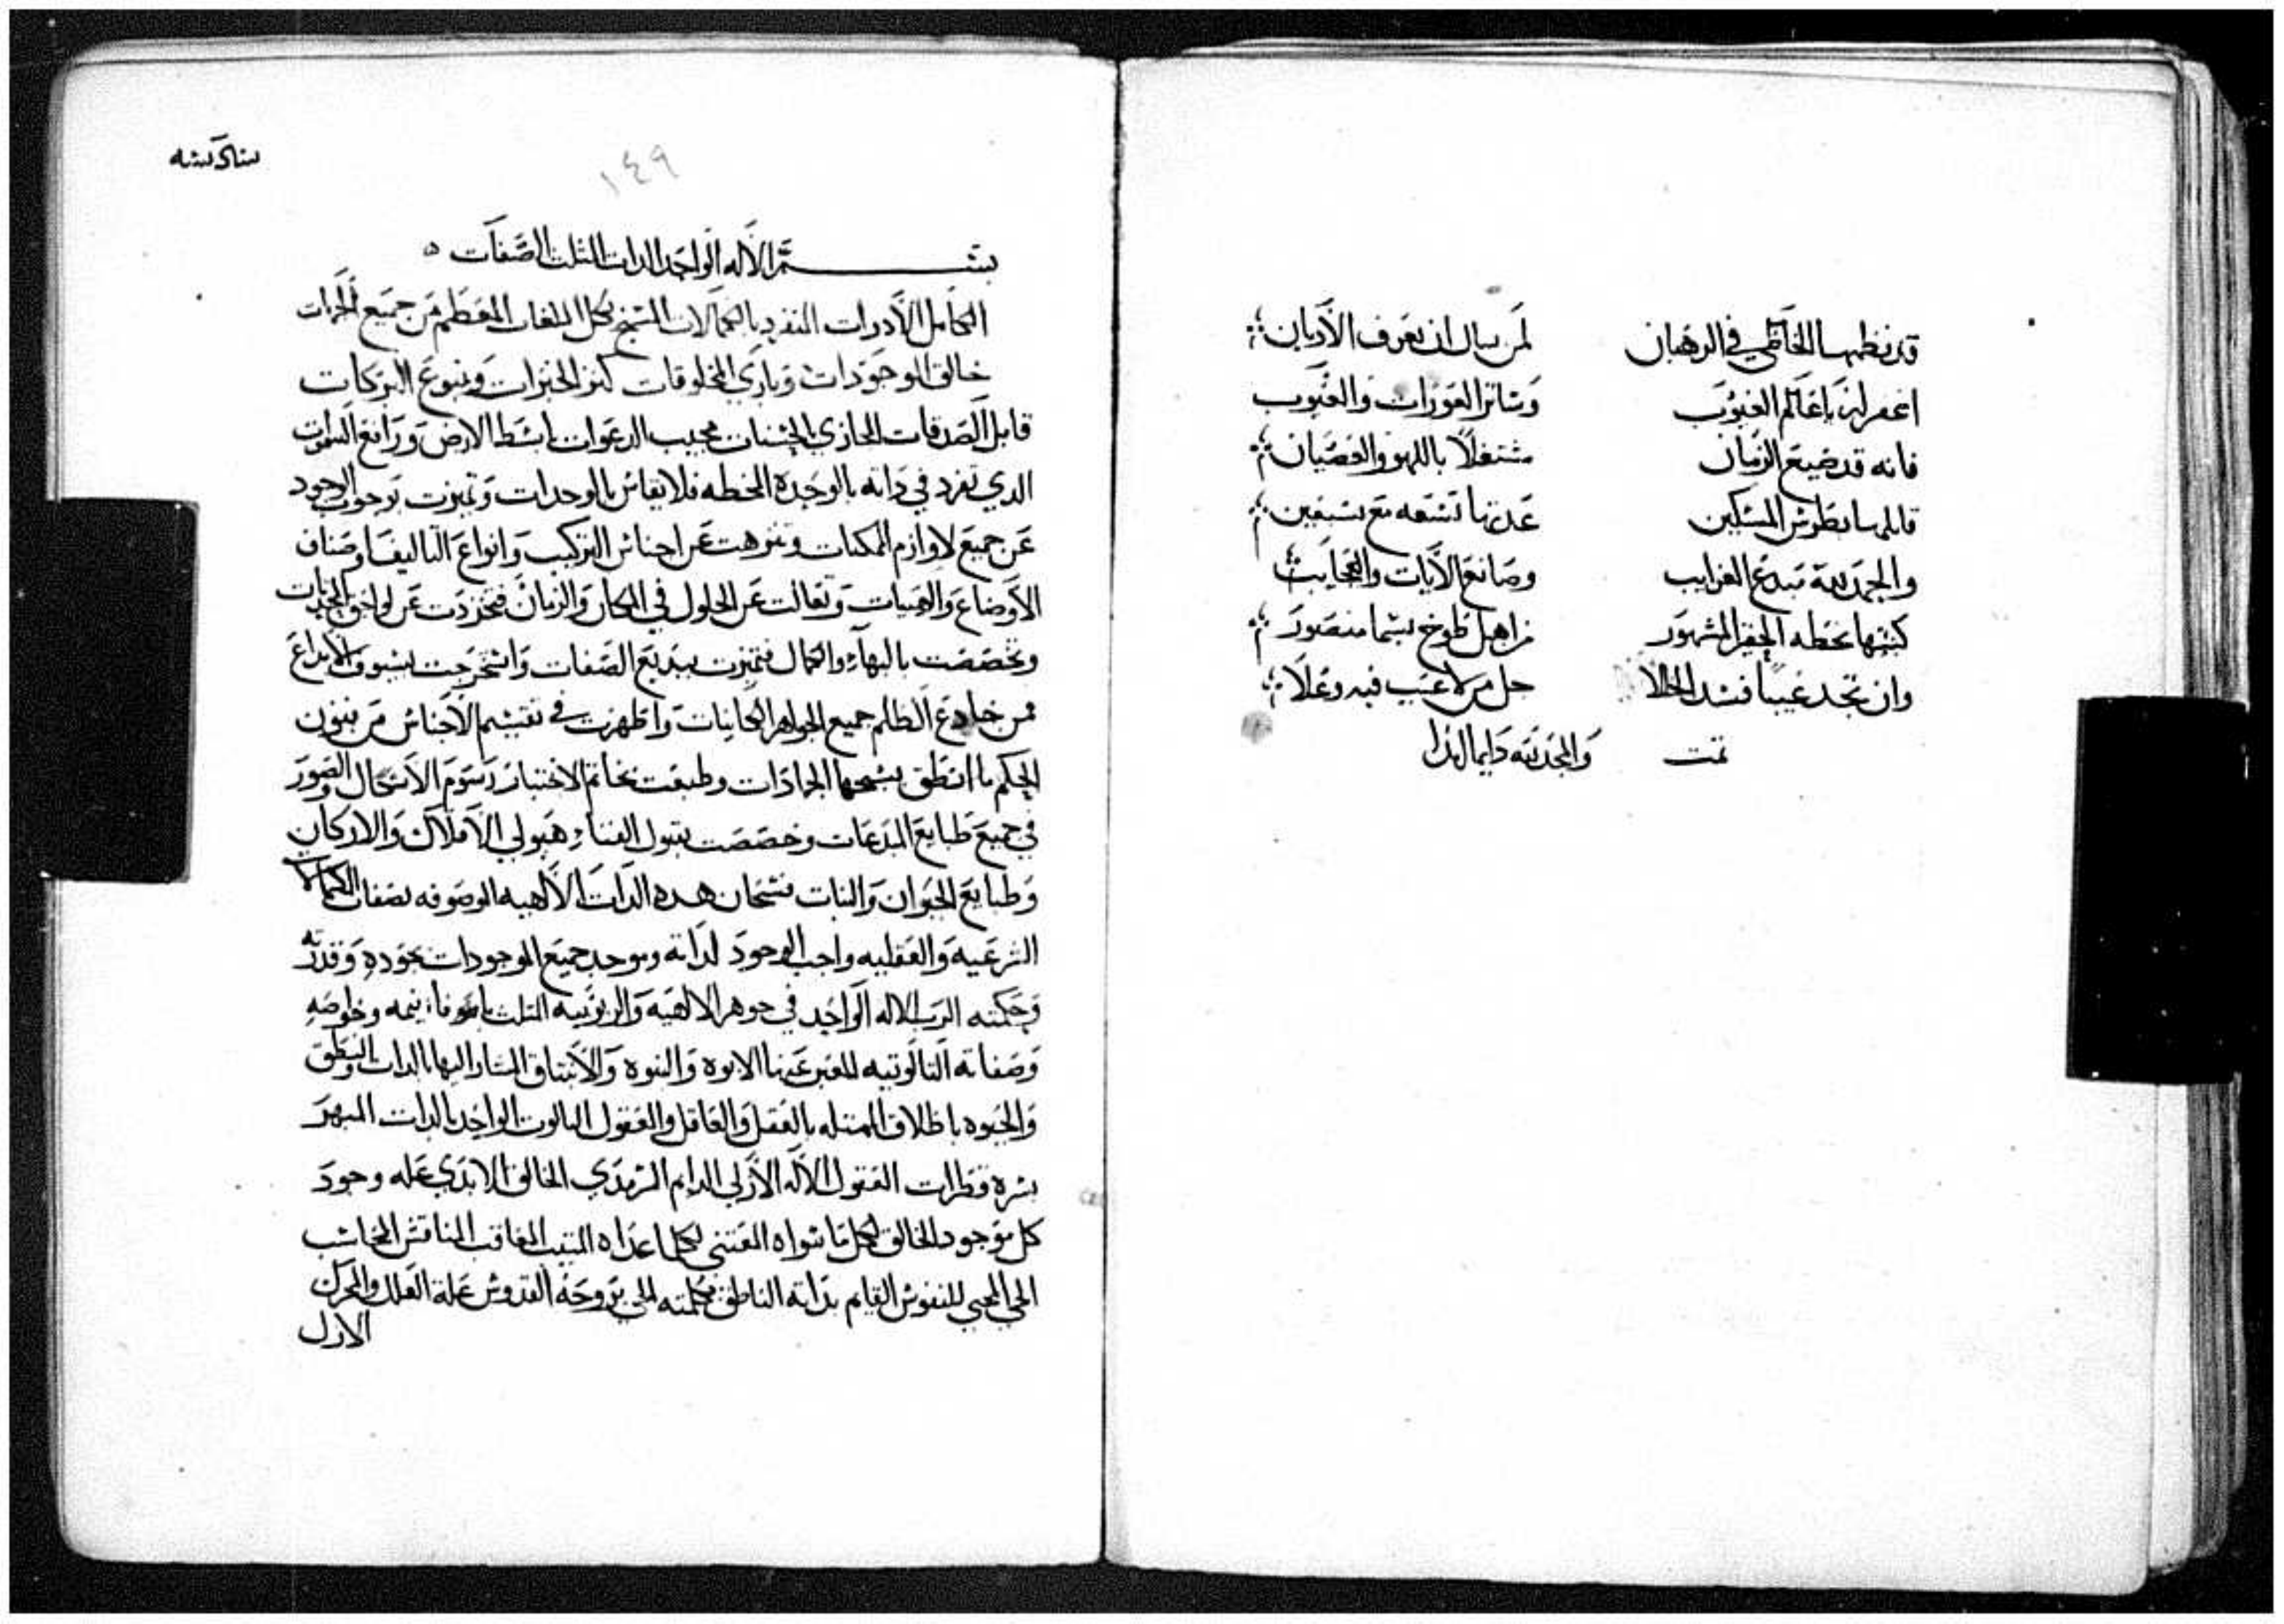 قد نظمها الخاطي في الرهبان لمن سال ان يعرف الأديان
اغفر له يا عالم الغيوب وساتر العورات والعيوب
فانه قد ضيع الزمان مشتغلاً باللهو والعصيان
قايلها بطرس المسكين عدتها تسعه مع سبعين
والحمد لله مبدع الغرايب وصانع الآيات والعجايب
كتبها بخطه الحقير المشهور من اهل طوخ بسما منصور
وان تجد عيباً فسد الخللا جل من لا عيب فيه وعلا
تمت والحمد لله دايما ابدا
١٤٩
بسم الأله الواحد الدات المثلث الصفات
الكامل الأدوات المنفرد بالكمالات المسبح بكل اللغات المعظم من جميع
خالق الموجودات وباري المخلوقات كنز الخيرات وينبوع البركات
قابل الصدقات المجازي بالحسنات مجيب الدعوات باسط الارض ورافع السموات
الدي تفرد في داته بالوحدة فلا يقاس بالوحدات وتميزت بوجوب الوجود
عن جميع لوازم الممكنات وتنزهت عن اجناس التركيب وانواع التاليف واصناف
الأوضاع والهييات وتعالت عن الحلول في المكان والزمان فتجردت عن لواحق
وتخصصت بالبهاء والكمال فتميزت ببديع الصفات واستخرجت بسبوق الأبداع
من خادع الظلم جميع الجواهر واظهرت في تقسيم الأجناس من فنون
الحكم ما انطق الجمادات وطبعت بخاتم الاختيار رسوم الأشكال والصور
في جميع طبايع المبدعات وخصصت بقبول الفناء هيولي الأفلاك والاركان
وطبايع الحيوان والنبات فسبحان هده الدات الألهيه الموصوفه بصفات الكمالات
الشرعيه والعقليه واجب الوجود لداته وموجد جميع الموجودات بجوده وقدرته
وحكمته الرب الاله الواحد في جوهر الالهيه والربوبيه المثلث باقانيمه وخواصه
وصفاته التالوتيه المعبر عنها الابوه والبنوه والأنبتاق المشار اليها بالدات والنطق
والحيوه باطلاق الممتله بالعقل والعاقل والمعقول التالوت الواحد بالدات المبهر
العقول الأله الأزلي الدايم السرمدي الخالق الابدي عله وجود
كل موجود الخالق لكل ما سواه المغني لكلما عداه المتيب المعاقب المناقش المحاسب
الحي المحيي للنفوس القايم بداته الناطق بكلمته الحي بروحه القدوس علة العلل والمحرك
الازل